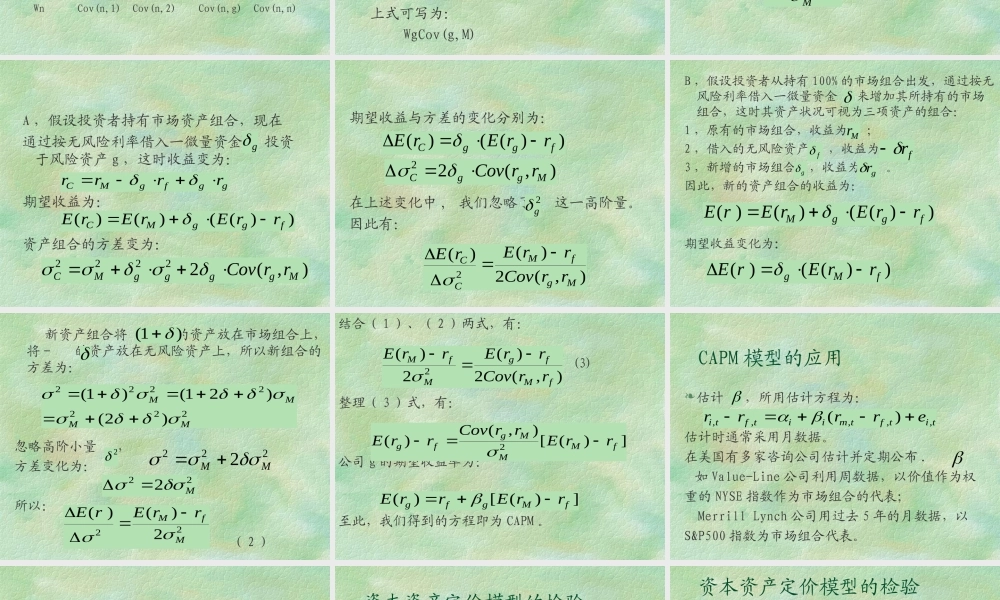 Wn Cov(n,1) Cov(n,2) Cov(n,g) Cov(n,n)
上式可写为：
WgCov(g,M)
A，假设投资者持有市场资产组合，现在
通过按无风险利率借入一微量资金 δg 投资
于风险资产 g，这时收益变为：
rC = rM − δg · rf + δg · rg
期望收益为：
E(rC) = E(rM) + δg · (E(rg) − rf)
资产组合的方差变为：
σC² = σM² + δg² · σg² + 2δg · Cov(rg, rM)
期望收益与方差的变化分别为：
ΔE(rC) = δg · (E(rg) − rf)
ΔσC² = 2δg · Cov(rg, rM)
在上述变化中， 我们忽略了 δg² 这一高阶量。
因此有：
ΔE(rC) / ΔσC² = E(rM) − rf / 2Cov(rg, rM)
B，假设投资者从持有 100% 的市场组合出发，通过按无
风险利率借入一微量资金 δ 来增加其所持有的市场
组合，这时其资产状况可视为三项资产的组合：
1，原有的市场组合，收益为 rM ；
2，借入的无风险资产 δf ，收益为 − δrf
3，新增的市场组合 δg ，收益为 δrg 。
因此，新的资产组合的收益为：
E(r) = E(rM) + δg · (E(rg) − rf)
期望收益变化为：
ΔE(r) = δg · (E(rM) − rf)
新资产组合将 (1+δ) 的资产放在市场组合上，
将 − δ 的资产放在无风险资产上，所以新组合的
方差为：
σ² = (1+δ)²σM² = (1+2δ+δ²)σM
= σM² + (2δ+δ²)σM²
忽略高阶小量 δ²，
方差变化为： σ² = σM² + 2δσM²
Δσ² = 2δσM²
所以：
ΔE(r) / Δσ² = E(rM) − rf / 2σM²
（2）
结合（1）、（2）两式，有：
E(rM) − rf / 2σM² = E(rg) − rf / 2Cov(rM, rf) (3)
整理（3）式，有：
E(rg) − rf = Cov(rg, rM) / σM² [E(rM) − rf]
公司 g 的期望收益率为：
E(rg) = rf + βg[E(rM) − rf]
至此，我们得到的方程即为 CAPM．
CAPM 模型的应用
估计 β ，所用估计方程为：
ri,t − rf,t = αi + βi(rm,t − rf,t) + ei,t
估计时通常采用月数据。
在美国有多家咨询公司估计并定期公布． β
如 Value-Line 公司利用周数据，以价值作为权
重的 NYSE 指数作为市场组合的代表；
Merrill Lynch 公司用过去 5 年的月数据，以
S&P500 指数为市场组合代表。
资本资产定价模型的检验
资本资产定价模型的检验